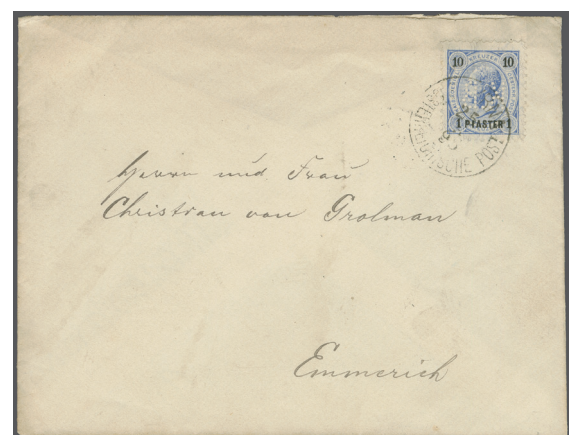 10 KREUZER 10
1 PIASTER 1
ÖSTERREICHISCHE POST
Herrn und Frau
Christian von Grolman
Emmerich